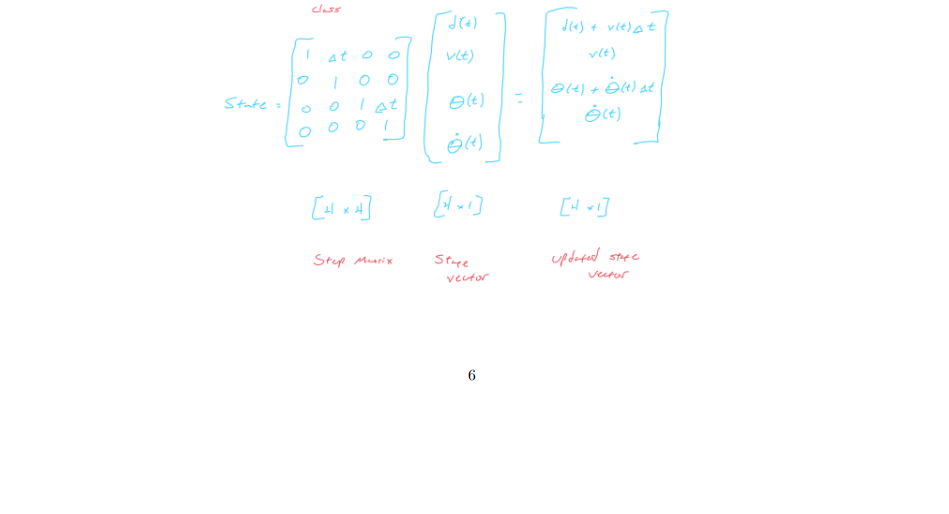 class
State = [ 1 Δt 0 0 ; 0 1 0 0 ; 0 0 1 Δt ; 0 0 0 1 ] [ d(t) ; v(t) ; θ(t) ; θ̇(t) ] = [ d(t) + v(t)Δt ; v(t) ; θ(t) + θ̇(t)Δt ; θ̇(t) ]
[4 × 4] [4 × 1] [4 × 1]
Step Matrix State vector updated state vector
6